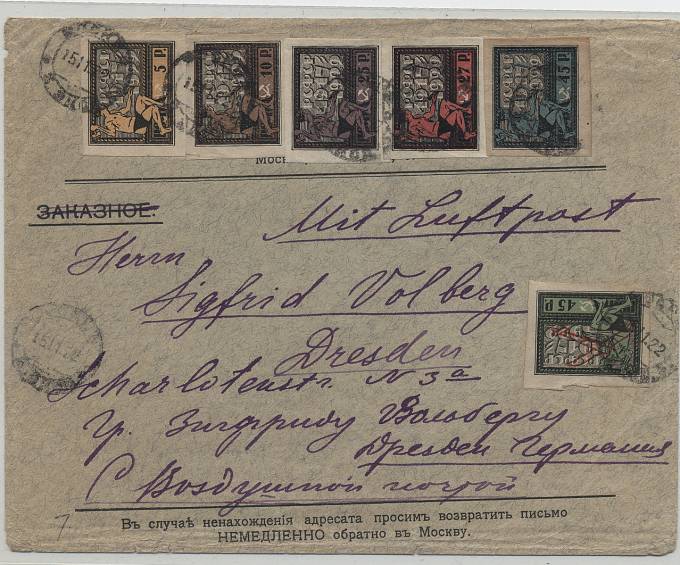 5 р. 10 р. 25 р. 27 р. 45 р.
РСФСР РСФСР
1917 1922
ЗАКАЗНОЕ.
Mit Luftpost
Herrn
Sigfrid Volberg
45 р.
Dresden
Scharlotenstr. N 3a
Гр. Зигфриду Вольбергу
Дрезден Германия
С Воздушной почтой
Въ случаѣ ненахожденія адресата просимъ возвратить письмо
НЕМЕДЛЕННО обратно въ Москву.
7.